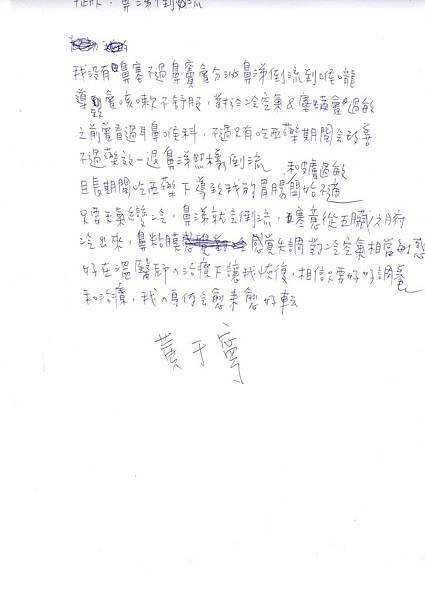 症狀：鼻涕倒流
我沒有鼻塞不過鼻竇會分泌鼻涕倒流到喉嚨
導致會咳嗽不舒服，對於冷空氣&塵蟎會過敏
之前曾看過耳鼻喉科，不過只有吃西藥期間會改善
不過藥效一退鼻涕照樣倒流，和膚過敏
且長期間吃西藥下導致我的胃腸開始不適
只要天氣變冷，鼻涕就會倒流，寒意從五臟六腑
冷出來，鼻黏膜感覺失調對冷空氣相當的感
好在溫醫師的治療下讓我恢復，相信只要好好調養
和治療，我的身体會愈來愈好轉
黃于